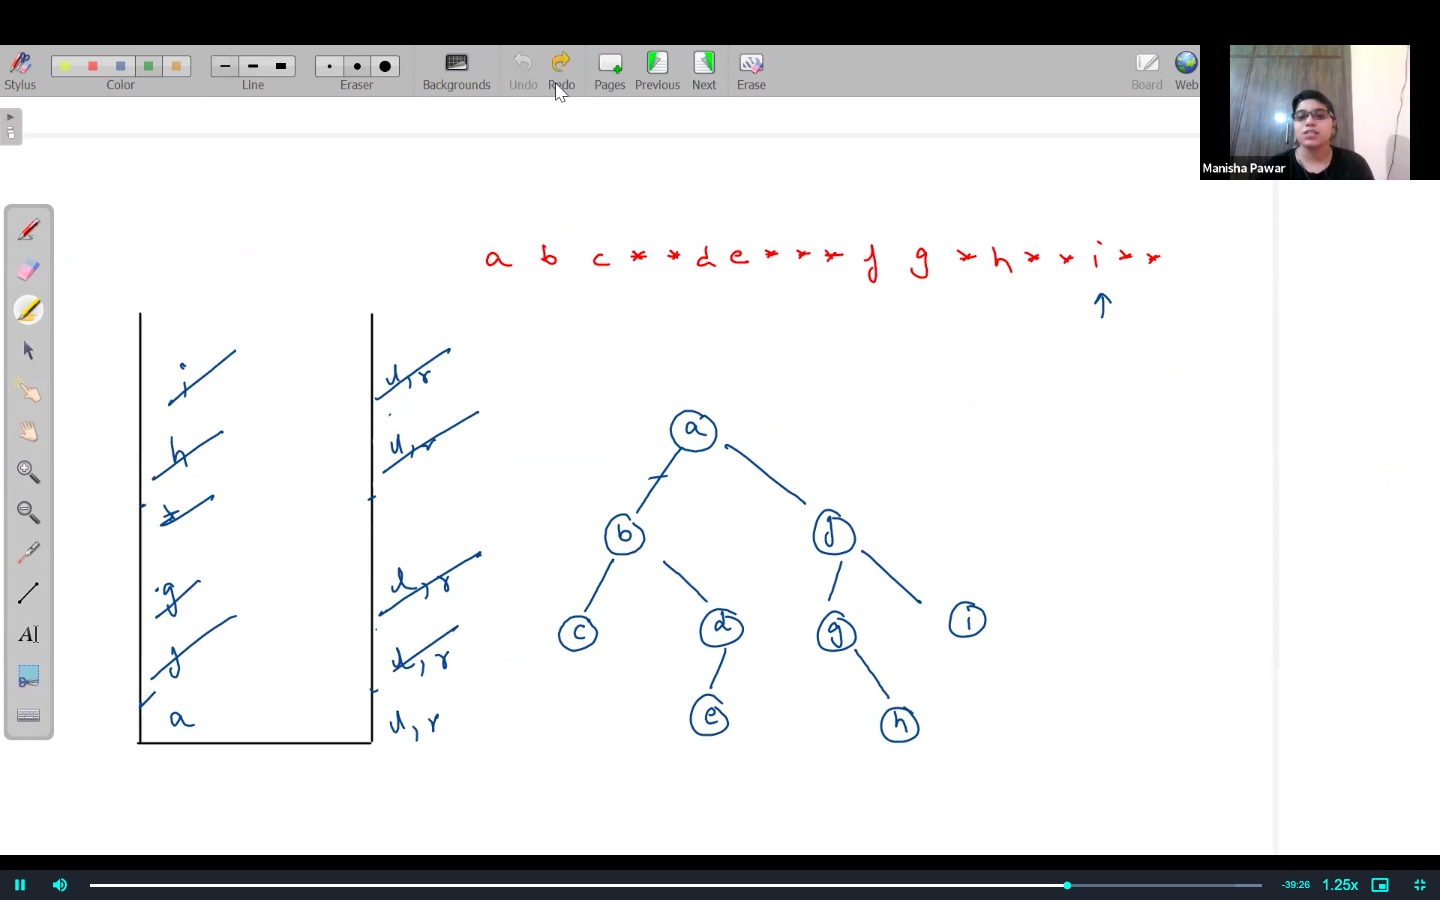 Stylus
Color
Line
Eraser
Backgrounds
Undo
Redo
Pages
Previous
Next
Erase
Board
Web
Manisha Pawar
a b c * * d e * * * f g * h * * i * *
i l, r
h l, r
g l, r
f l, r
a l, r
a
b f
c d g i
e h
A
-39:26
1.25x